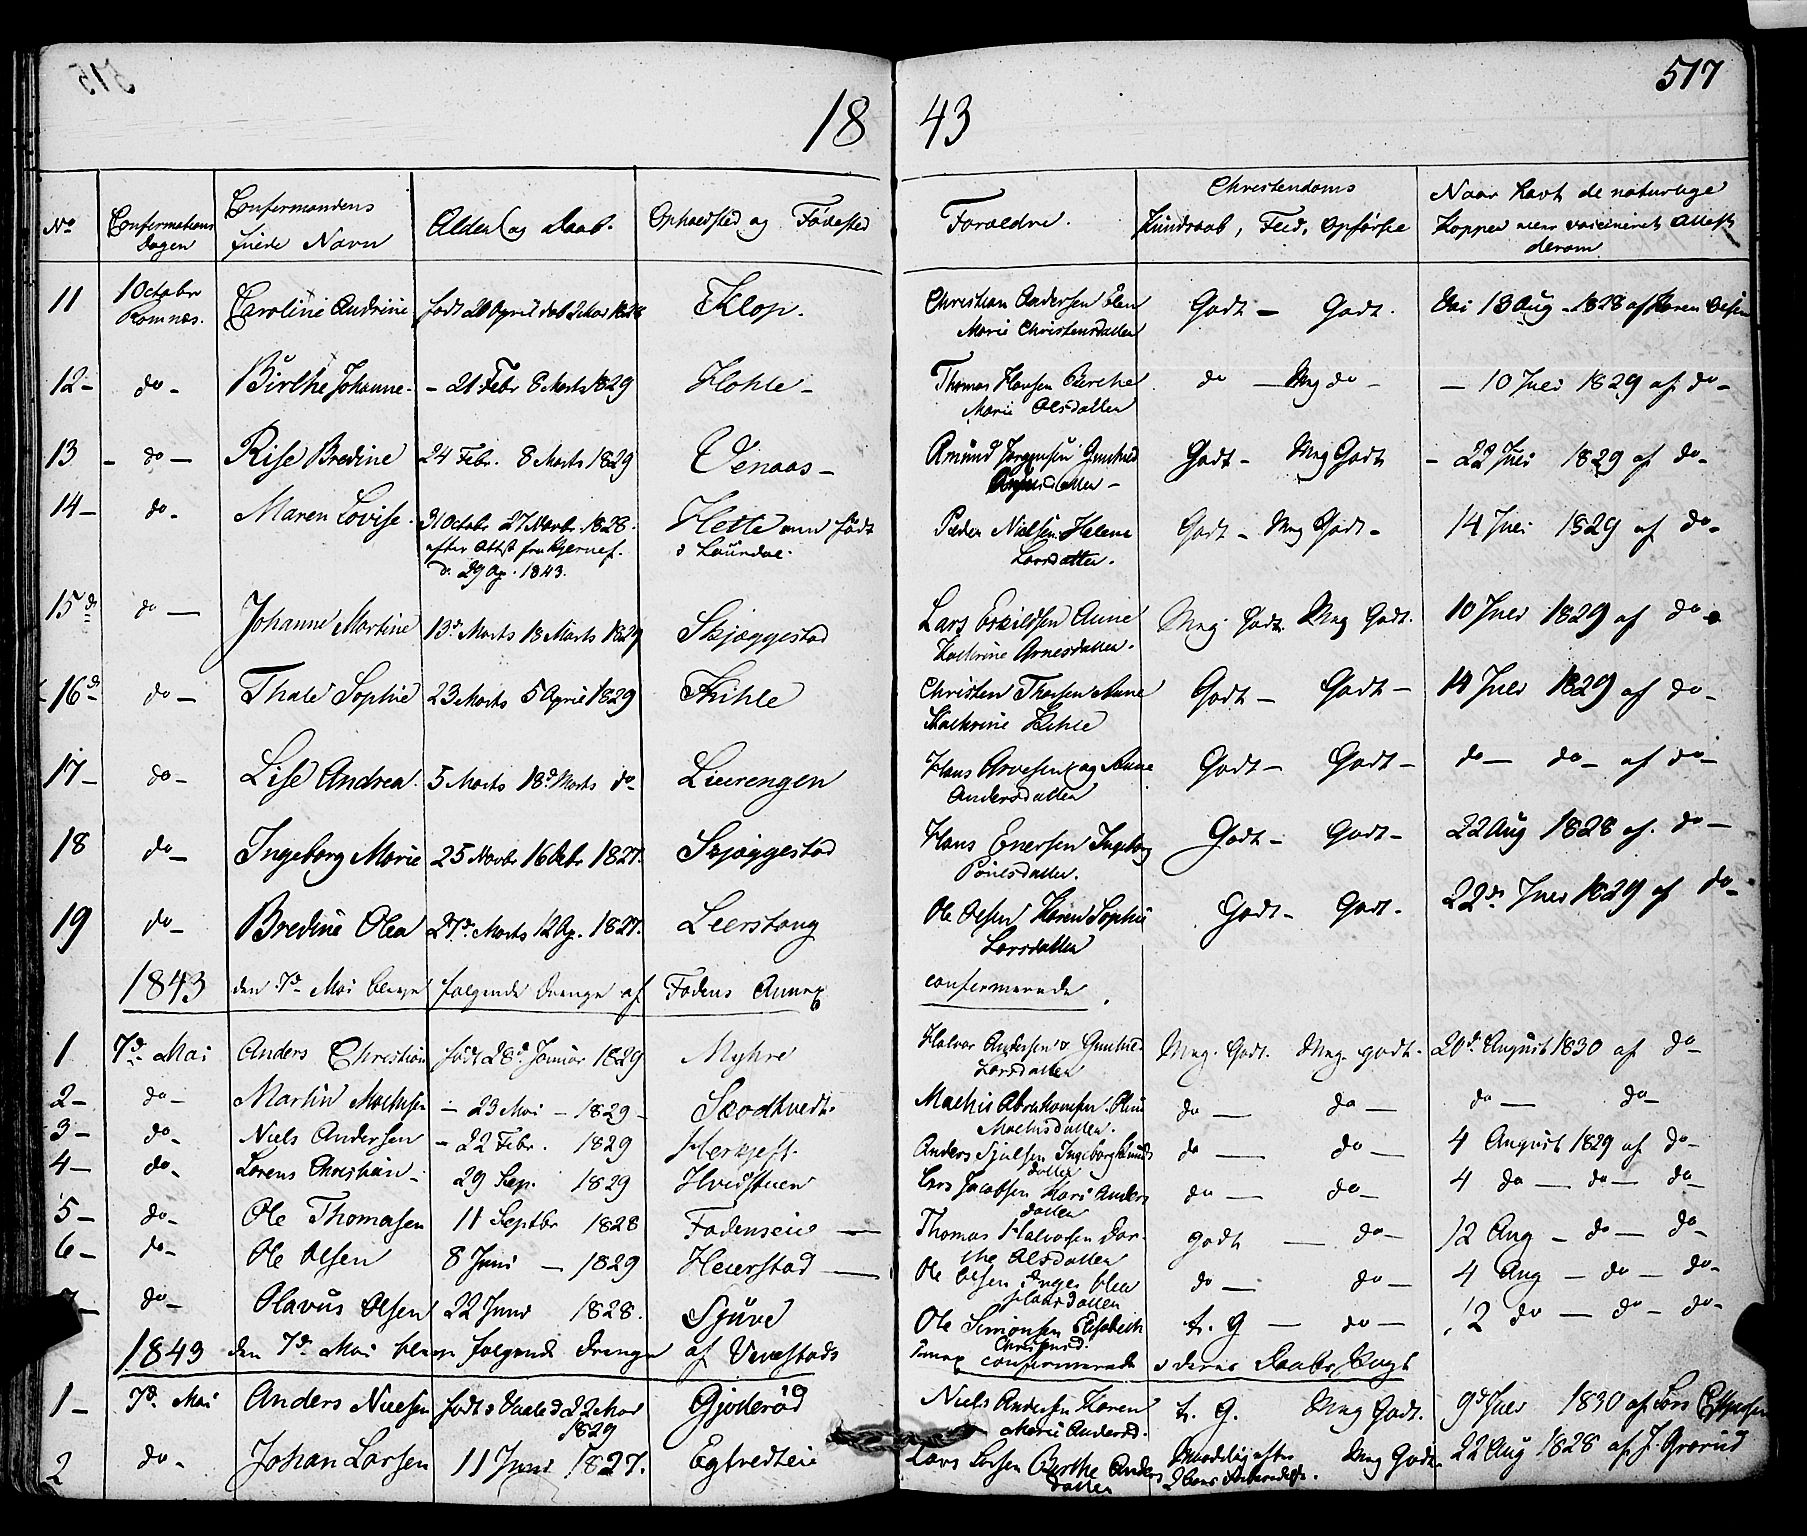 517
18 43
No
Confermations Dagen
Confermandens fulde Navn
Alder og Daab.
Opholdsted og Fødested
Forældre.
Christendoms Kundskab, Flid, Opførsel
Naar havt de naturlige Kopper eller vaccineret Attest derom
11 1 Octobr Komnæs. Caroline Andrine født 20 April døbt 2 Mai 1828 Klop. Christian Andersen Elen Marie Christensdatter Godt - Godt. 13 Aug - 1828 af Karen Olsen
12 - do - Birthe Johanne - - 21 Febr 8 Marts 1829 Hohle - Thomas Hansen Birthe Marie Olsdatter do - Mg do - - 10 Juli 1829 af do -
13 - do - Rise Bredine 24 Febr. 8 Marts 1829 Venaas - Amund Jørgensen Gunhild Godt - Meg Godt - 22 Juli 1829 af do -
14 - do - Maren Lovise. 31 Octobr 27 Novbr. 1828. efter Attest fra d. 29 Ap. 1843. Helle men født i Laurdal. Peder Nielsen Helene Larsdatter. Godt - Meg Godt - 14 Juli 1829 af do -
15 do - Johanne Martine 13d Marts 18 Marts 1829 Skjæggestad Lars Eskildsen Anne Kathrine Arnesdatter. Meg Godt. Meg Godt. 10 Juli 1829 af do -
16 do - Thale Sophie 23 Marts 5 April 1829 Kihle Christen Thorsen Anne Kathrine Kihle Godt - Godt - 14 Juli 1829 af do -
17 - do - Lise Andrea. 5 Marts 18d Marts do - Lierengen Hans Arvesen og Anne Andersdatter Godt - Godt - do - do - af do -
18 do - Ingeborg Marie 25 Novbr 16 Dcbr 1827. Skjæggestad Hans Enersen Ingeborg Povelsdatter. Godt - Godt - 22 Aug 1828 af. do -
19 do - Bredine Olea 27d Marts 12 Ap. 1827. Leerstang Ole Olsen Karen Sophie Larsdatter Godt - Godt. 22d Juli 1829 af do -
1843 den 7d Mai bleve følgende Drenge af Fodens Annex confermerede
1 7d Mai Anders Christian født 28d Januar 1829 Myhre Halvor Andersen & Gunhild Larsdatter Meg. Godt. Meg godt. 20d August 1830 af do -
2 - do - Martin Mathisen - 23 Mai - 1829 - Mathis Abrahamsen Mathisdatter. do - do - do - do -
3 - do - Niels Andersen - 22 Febr. 1829 Anders Ingeborg datter do - do - 4 August 1829 af do -
4 - do - Lorens Christian - 29 Sep. 1829 Hvidstuen Lars Jacobsen Kari Anders datter do - do - 4 do - do - do -
5 - do - Ole Thomasen 11 Septbr 1828 Fodenseie - Thomas Halvorsen Dorthe Olsdatter godt - do - 12 Aug - do - do -
6 - do - Ole Olsen 8 Juni - 1829 Heierstad - Ole Olsen Inger Olea datter do - do - 4 Aug - do - do -
7 - do - Olavus Olsen 22 Juni 1828. Sjuve Ole Simonsen Elisabeth t. G - do - 12 do - do - do -
1843 den 7d Mai bleve følgende Drenge af Vivestads Annex confermerede i deres Daabs Pagt
1 - 7d Mai Anders Nielsen født 22 Mai 1829 Gjøterød Niels Andersen Karen Marie Andersd. t. G. Meg Godt. 9d Juli 1830 af
2 do - Johan Larsen 11 Juni 1827. Egtvedteie Lars Larsen Berthe Anders datter Meg Godt. 22 Aug 1828 af J. Grorud